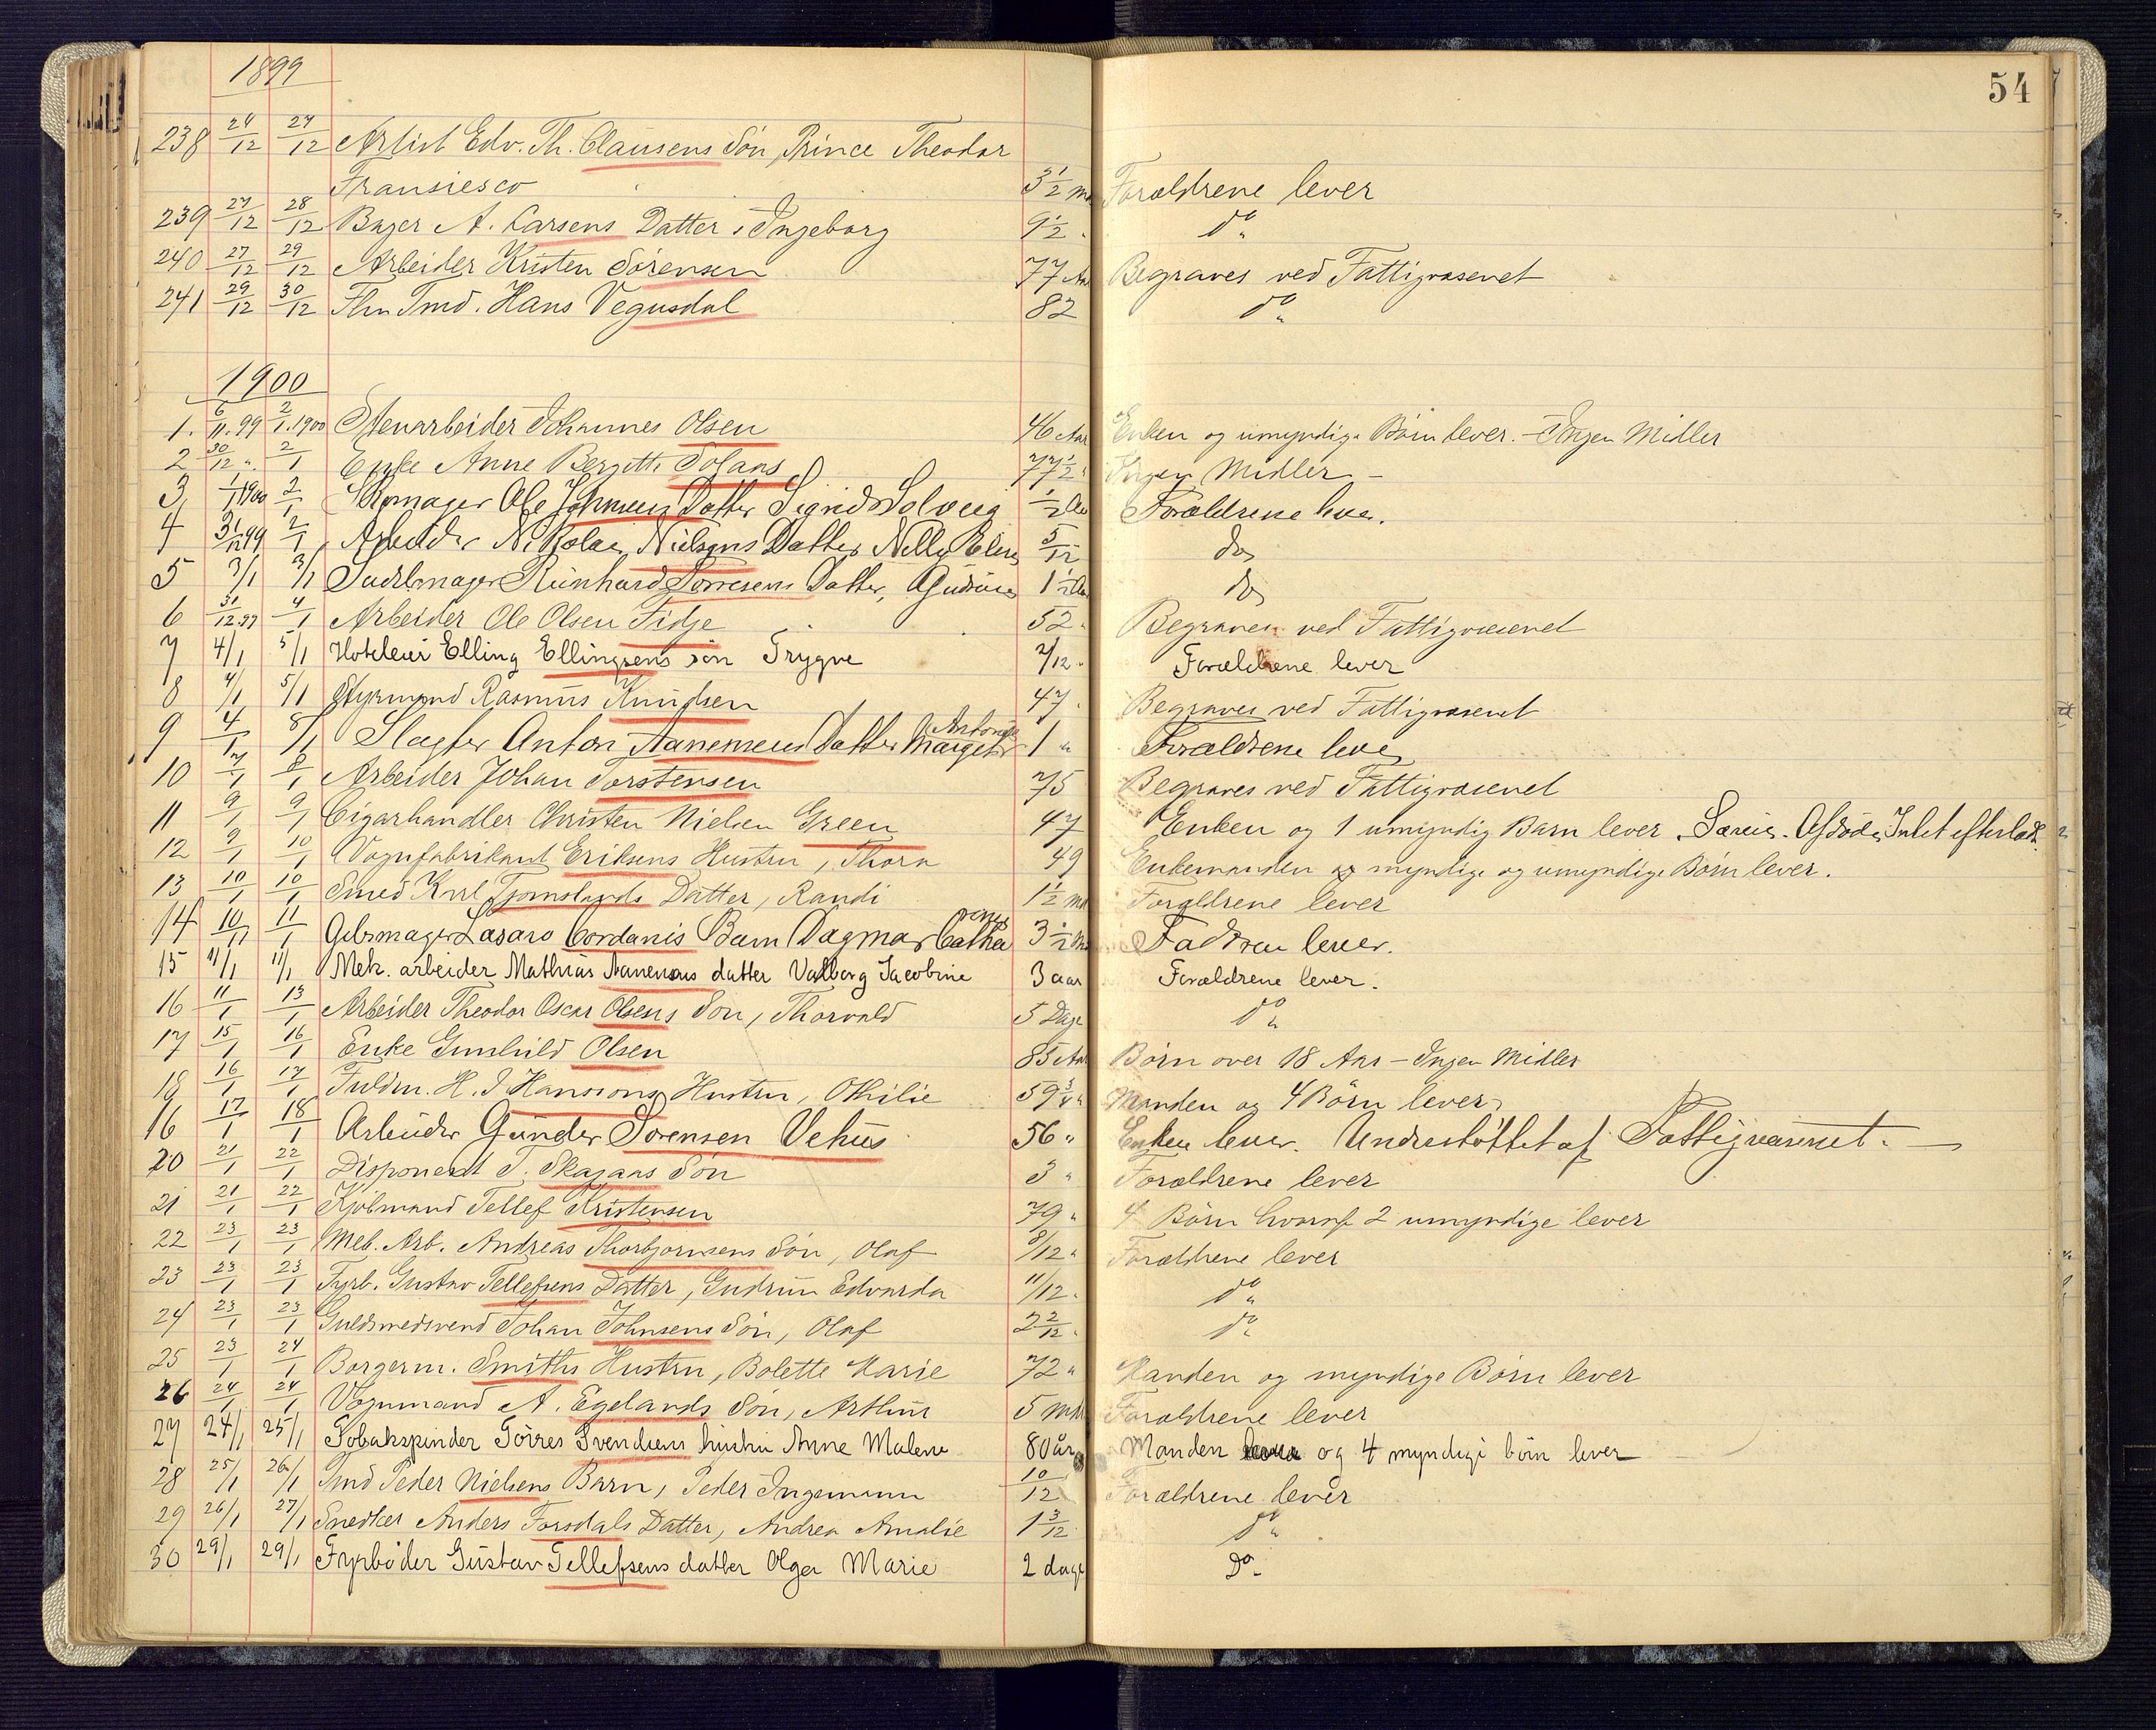 54
1899
238 24/12 27/12 Artist Edv. Th. Clausens Søn, Prince Theodor
Fransiesco 3 1/2 Md Forældrene lever
239 27/12 28/12 Bager A. Larsens Datter, Ingeborg 9 1/2 " do
240 27/12 29/12 Arbeider Kristen Sørensen 77 Aar Begraves ved Fattigvæsenet
241 29/12 30/12 Fhv Tmd. Hans Vegusdal 82 do
1900
1. 6/11.99 2/1.1900 Stenarbeider Johannes Olsen 46 Aar Enken og umyndige Børn lever. - Ingen Midler
2 30/12 " 2/1 Enke Anne Bergitte Solaas 77 1/2 " Ingen Midler -
3 1/1 1900 2/1 Skomager Ole Johnsens Datter Sigrid Solveig 1/2 Aar Forældrene lever.
4 31/12 99 2/1 Arbeider Nikolai Nielsens Datter Nelly Elise 5/12 do
5 3/1 3/1 Sadelmager Reinhard Torresens Datter, Gudrun 1 1/2 Aar do
6 31/12.99 4/1 Arbeider Ole Olsen Fidje 52 " Begraves ved Fattigvæsenet
7 4/1 5/1 Hoteleier Elling Ellingsens søn Trygve 2/12 " Forældrene lever
8 4/1 5/1 Styrmand Rasmus Knudsen 47 " Begraves ved Fattigvæsenet
9 4/1 8/1 Slagter Anton Aanensens Datter Margit Antonie 1 " Forældrene lever
10 7/1 8/1 Arbeider Johan Torstensen 75 Begraves ved Fattigvæsenet
11 9/1 9/1 Cigarhandler Christen Nielsen Green 47 Enken og 1 umyndig Barn lever. Særeie. Afdøde Intet efterladt
12 9/1 10/1 Vognfabrikant Eriksens Hustru, Thora 49 Enkemanden og myndige og umyndige Børn lever.
13 10/1 10/1 Smed Karl Tjomslands Datter, Randi 1 1/2 Md Forældrene lever
14 10/1 11/1 Gibsmager Lasaro Cordanis Barn Dagmar Cathrine 3 1/2 Md Faderen lever.
15 11/1 11/1 Mek. arbeider Mathias Aanensens datter Valborg Jacobine 3 aar Forældrene lever.
16 11/1 13/1 Arbeider Theodor Oscar Olsens Søn, Thorvald 5 Dage do
17 15/1 16/1 Enke Gunhild Olsen 85 Aar Børn over 18 Aar - Ingen Midler
18 16/1 17/1 Fuldm. H. J. Hansons Hustru, Othilie 59 3/4 " Manden og 4 Børn lever
16 17/1 18/1 Arbeider Gunder Sørensen Vehus 56 " Enken lever. Understøttet af Fattigvæsenet. -
20 21/1 22/1 Disponent T. Skajaas Søn 3 " Forældrene lever
21 21/1 22/1 Kjøbmand Tellef Kristensen 79 " 4 Børn hvoraf 2 umyndige lever
22 23/1 23/1 Mek. Arb. Andreas Thorbjørnsens Søn, Olaf 8/12 " Forældrene lever
23 23/1 23/1 Fyrb. Gustav Tellefsens Datter, Gudrun Edvarda 11/12 " do
24 23/1 23/1 Guldsmedsvend Johan Johnsens Søn, Olaf 2 2/12 " do
25 23/1 24/1 Borgerm. Smiths Hustru, Bolette Marie 72 " Manden og myndige Børn lever
26 24/1 24/1 Vognmand A. Egelands Søn, Arthur 5 Md Forældrene lever
27 24/1 25/1 Tobakspinder Tørres Svendsens hustru Anne Malene 80 år Manden og 4 myndige børn lever
28 25/1 26/1 Tmd Peder Nielsens Barn, Peder Ingemann 10/12 Forældrene lever
29 26/1 27/1 Snedker Anders Forsdals Datter, Andrea Amalie 1 3/12 do
30 29/1 29/1 Fyrbøder Gustav Tellefsens datter Olga Marie 2 dage Do